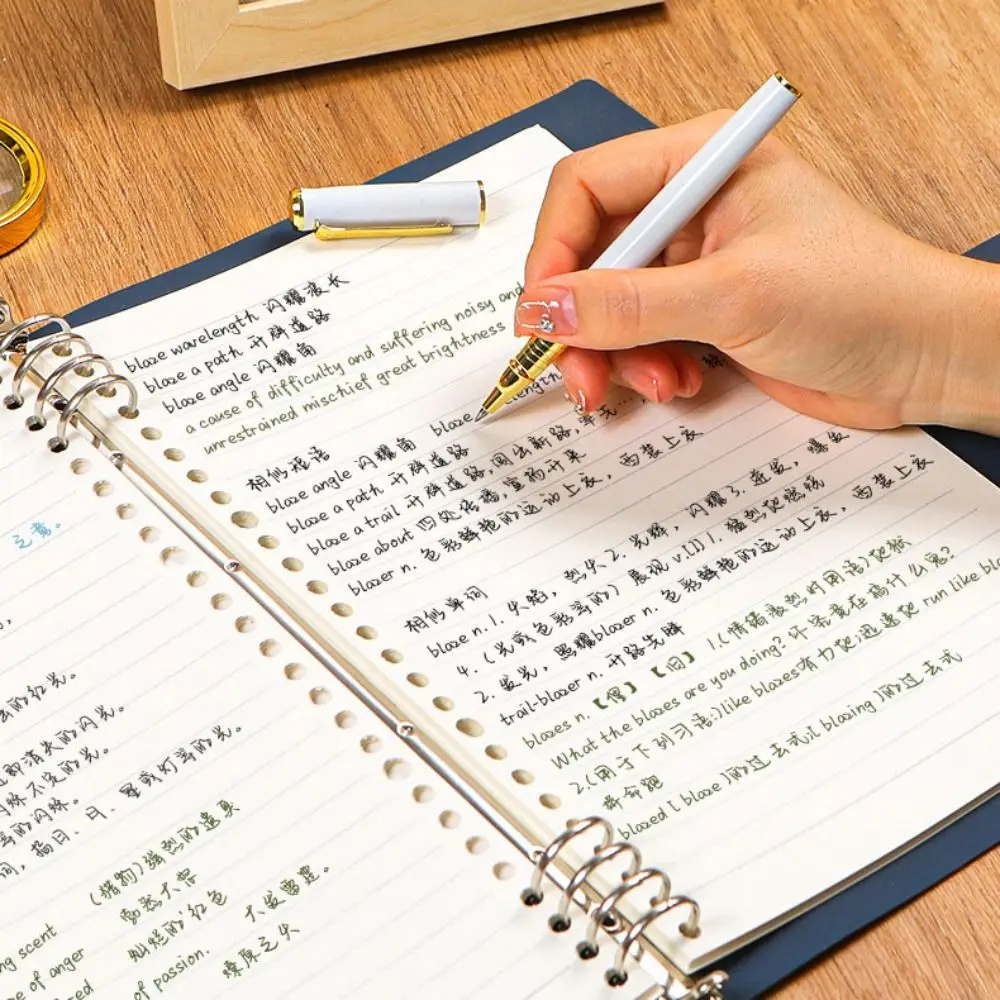 之意。
的红光。
即消失的闪光。
不定的光。
的闪烁。
词,指日、月、星或灯等的光。
(猎物)强烈的遗臭
勃然大怒
灿烂的红色
大发雷霆。
燎原之火
scent
of anger
of passion.
blaze wavelength 闪耀波长
blaze a path 开辟道路
blaze angle 闪耀角
a cause of difficulty and suffering noisy and
unrestrained mischief great brightness
相似短语
blaze angle 闪耀角 blaze
blaze a path 开辟道路
blaze a trail 开辟道路,闯出新路,率先…,
blaze about 四处传播,宣扬开来
blazer n. 色彩鲜艳的运动上衣, 西装上衣
相似单词
blaze n. 1. 火焰, 烈火 2. 光辉, 闪耀 3. 迸发, 爆发
4. (光或色彩等的) 展现 v.[I] 1. 猛烈地燃烧
2. 发光, 照耀 blazer n. 色彩鲜艳的运动上衣, 西装上衣
trail-blazer n. 开路先锋
blazes n. 【俚】【旧】 1.(情绪激烈时用语)地狱
What the blazes are you doing? 你究竟在搞什么鬼?
2.(用于下列习语:)like blazes 有力地;迅速地 run like
拼命跑
blazed [ blaze ]的过去式;[ blazing ]的过去式